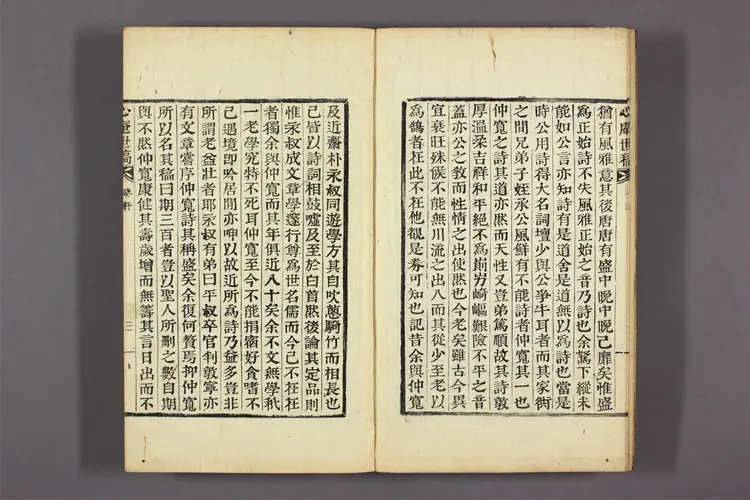 心庵世稿
猶有風雅意其後唐唐有盛中晩中晩己靡矣惟盛
爲正始詩不失風雅正始之音乃詩也余駑下縱未
能如公言亦知詩有是道舍是道無以爲詩也當是
時公用詩得大名詞壇少與公爭牛耳者而其家衖
之間兄弟子姪承公風鮮有不能詩者仲寬其一也
仲寬之詩其道亦然而天性又豈弟篤順故其詩敦
厚溫柔吉祥和平絕不爲崱屴崎嶇艱險不平之音
蓋亦公之敎而性情之出使然也今老矣雖古今異
宜衰旺殊候不能無川流之出入而其從少至老以
爲鵠者在此不在他覩是券可知也記昔余與仲寬
及近齋朴永叔同遊學方其自吹蔥騎竹而相長也
己皆以詩詞相鼓噓及至於白首然後論其定品則
惟永叔成文章學邃行尊爲世名儒而今己不在在
者獨余與仲寬而其年俱近八十矣余不文無學秖
一老學究特不死耳仲寬至今不能捐宿好食嗜不
己遇境卽吟居閒亦呻以故近所爲詩乃益多豈非
所謂老益壯者耶永叔有弟曰平叔卒官判敦寧亦
有文章嘗序仲寬詩其稱盛矣余復何贅焉抑仲寬
所以名其稿曰期三百者豈以聖人所刪之數自期
與不然仲寬康健其壽歲增而無筭其言日出而不
心庵世稿
三